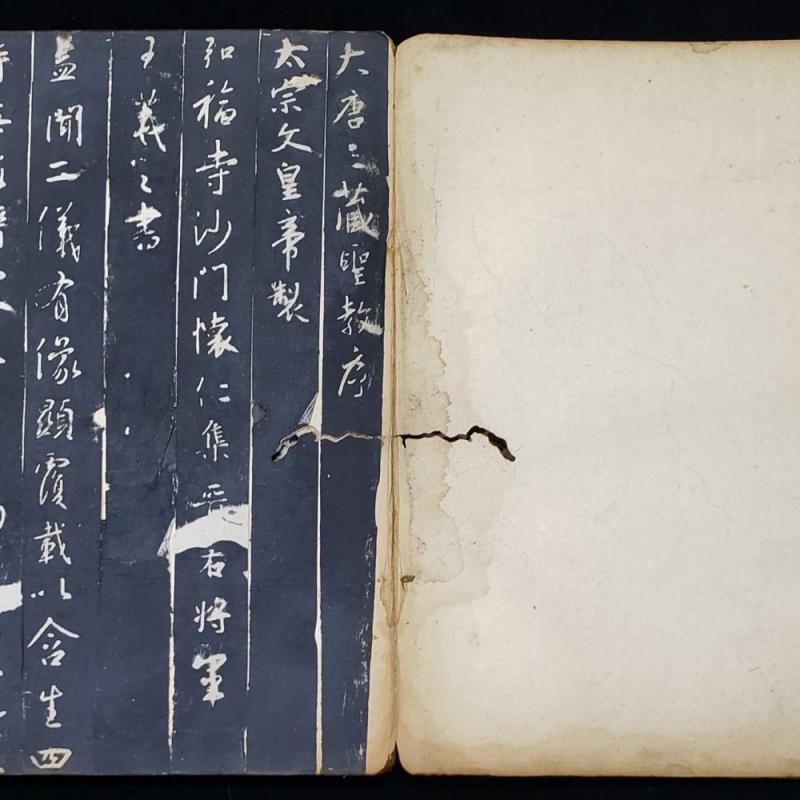 大唐三藏聖教序
太宗文皇帝製
弘福寺沙門懷仁集晉右將軍
王羲之書
蓋聞二儀有像顯覆載以含生四